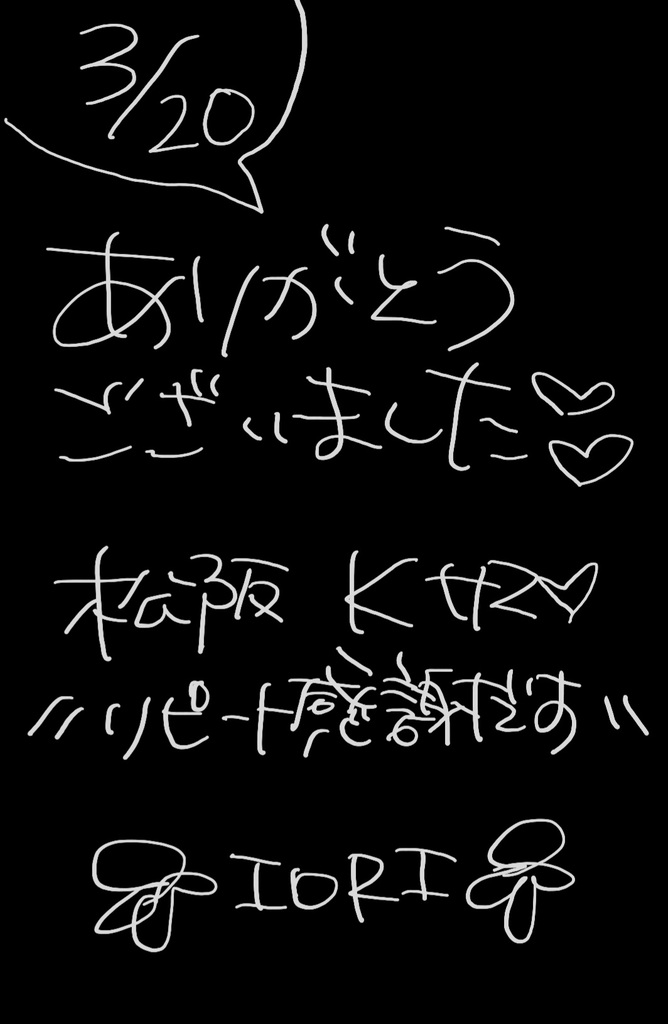 3/20
ありがとう
ございました♡♡
松阪 K サマ♡
〃リピート感謝です〃
IORI